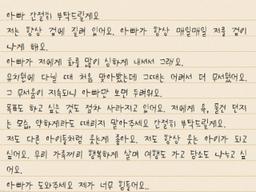 아빠 간절히 부탁드릴게요
저는 항상 겁에 질려 있어요. 아빠가 항상 매일매일 저를 겁이
나게 해요.
아빠가 저에게 화를 많이 심하게 내셔서 그래요.
유치원에 다닐 때 처음 맞아봤는데 그때는 어려서 더 무서웠어요.
그 무서움이 지속되니 아빠만 보면 두려워요.
목표도 하고 싶은 것도 점차 사라지고 있어요. 저에게 욕, 물건 던지
는 모습, 약하게라도 때리지 말아주세요 간절히 부탁드릴게요.
저도 다른 아이들처럼 웃는게 좋아요. 저도 항상 웃는 아이가 되고
싶어요. 우리 가족끼리 행복하게 살며 여행도 가고 담소도 나누고 싶
어요.
아빠가 도와주세요 제가 너무 힘들어요.